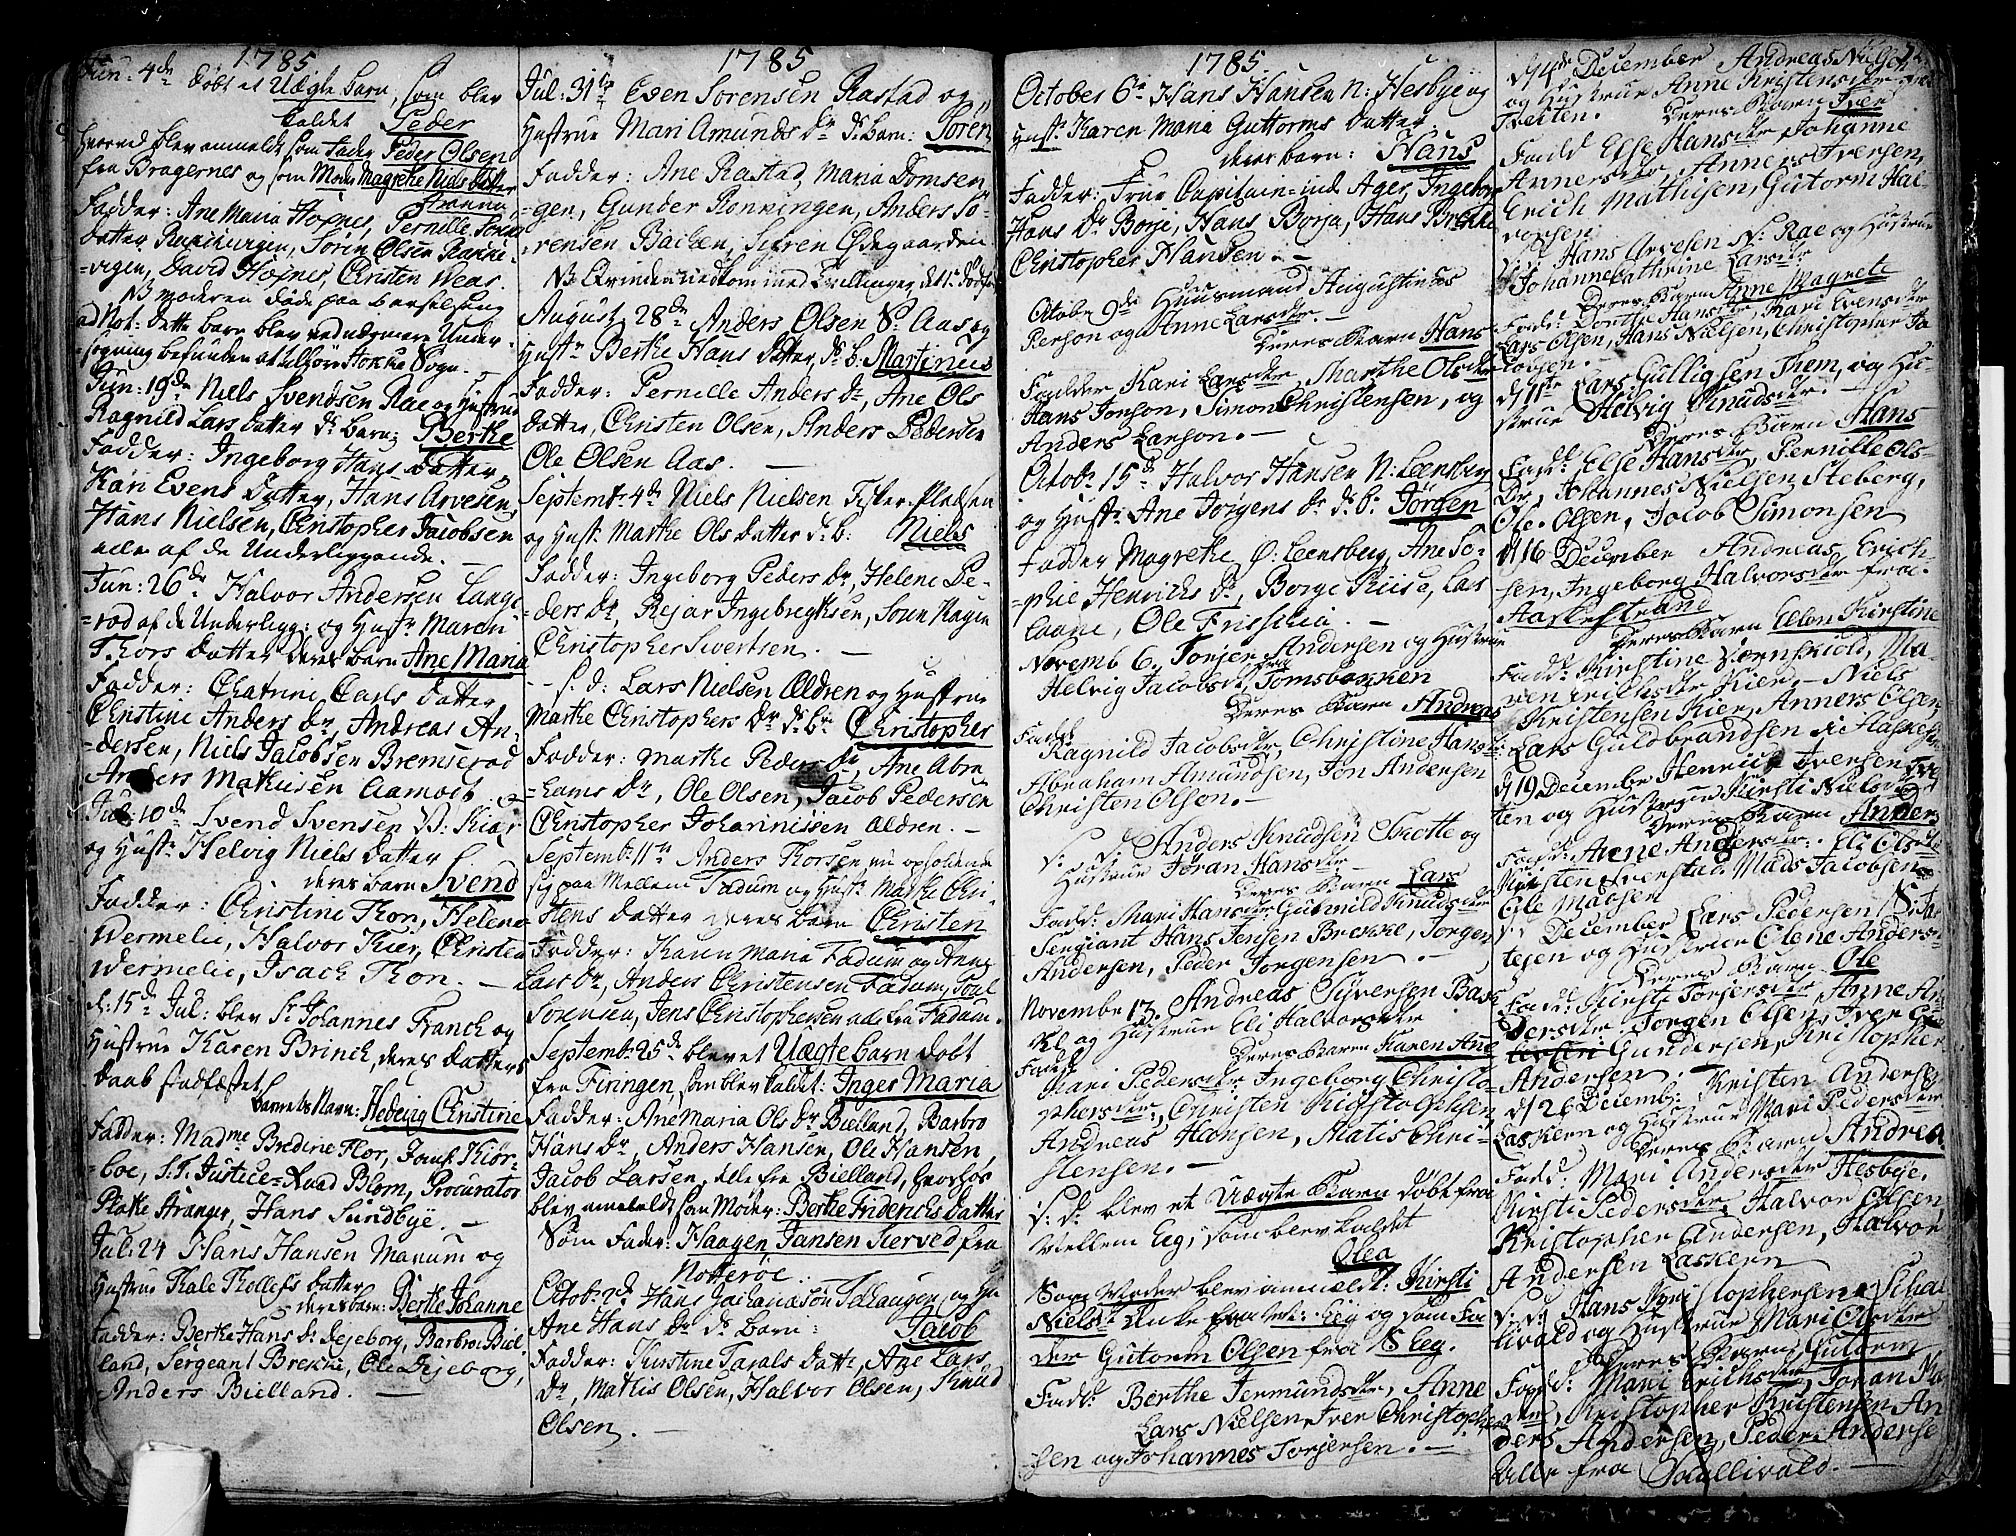 1785
Jun: 4de döbt et Uægte barn, som blev
kaldet Peder
Herved blev anmeldt som Fader Peder Olsen
fra Bragernes og som Moder Magrethe Niels datter
Fadder: Ane Maria Hoxnes, Pernille Sörens
datter Ramburgen, Sören Olsen
vigen, David Hoxnes, Christen Weas.
NB moderen döde paa barselseng
ad Not: dette barn blev ved nærmere Under-
sögning befunden at tilhöre Stokke Sogn.
Jun: 19de Niels Svendsen Rae og Hustrue
Ragnild Lars datter Ds barn: Berthe
Fadder: Ingeborg Hans datter,
Kari Evens datter, Hans Arvesen,
Hans Nielsen, Christopher Jacobsen
alle af de Underliggende.
Jun: 26de Halvor Andersen Lange-
=rød af de Underligg: og Hustr Maren
Thors datter deres barn Ane Maria
Fadder: Chatrine Carls datter
Christine Anders Dr, Andreas An-
=dersen, Niels Jacobsen Bremserød
Anders Mathisen Aamodt
Jul: 10de Svend Svensen N: Kiær
og Hustr Helvig Niels datter
deres barn Svend
Fadder: Christine Thon, Helene
Wermelie, Halvor Kier, Christen
Wermelie, Isach Thon.
d: 15de Jul: blev Sr Johannes Franck og
Hustrue Karen Brinch, deres datters
daab stadfæstet
barnets Navn: Hedevig Christine
Fadder: Madme Bredine Flor, Jomf: Kiör-
=boe, S.T. Justice=Raad Blom, Procurator
Platte Stranger, Hans Sundbye.
Jul: 24 Hans Hansen Marum og
Hustrue Kale Tollefs datter
deres barn: Berthe Johanne
Fadder: Berthe Hans Dr Dejeborg, Barbroe Biel-
land, Sergeant Brekke, Ole Dejeborg,
Anders Bielland.
1785
Jul: 31te Even Sorensen Rastad og
Hustrue Mari Amunds Dr Ds barn: Sören
Fadder: Ane Rastad, Maria Domsen
=gen, Gunder Ronningen, Anders So-
=rensen Bachen, Sifren Ödegaarden
NB Qvinden nedkom med Tvillinger den 1te dödfød
August 28de Anders Olsen N: Aas og
Hustr Berthe Hans datter, Ds b: Martinus
Fadder: Pernille Anders Dr, Ane Ols
datter, Christen Olsen, Anders Pedersen
Ole Olsen Aas.
Septemb: 4de Niels Nielsen Fisker-Pladsen
og Hustr Marthe Ols datter Ds b: Niels
Fadder: Ingeborg Peders Dr, Helene Pe-
ders Dr, Rejar Ingebregtsen, Soren Hagen
Christopher Sivertsen.
S: d: Lars Nielsen Ældren og Hustrue
Marthe Christophers Dr Ds b: Christopher
Fadder: Marthe Peders Dr, Ane Abra
=hams Dr, Ole Olsen, Jacob Pedersen
Christopher Johannissen Ældren.
Septemb: 11te Anders Thorsen nu opholdende
sig paa Mellem Fadum og Hustr Marthe Chri-
stens datter deres barn Christen
Fadder: Karen Maria Fadum og Anne
Lars Dr, Anders Christensen Fadum, Poul
Sorensen, Jens Christophersen alle fra Fadum.
Septemb: 25de blev et Uægte barn döbt
fra Firingen, som blev kaldet: Inger Maria
Fadder: Ane Maria Ols Dr Bielland, Barbro
Hans Dr, Anders Hansen, Ole Hansen,
Jacob Larsen, alle fra Bielland, hvorhos
blev anmeldt som Moder: Berthe Friderichs datter
Som Fader: Haagen Jansen Kierved fra
Notteröe.
Octob: 2de Hans Jochumsön Tolhaugen, og Hu
Ane Hans Dr Ds Barn: Jacob
Fadder: Kirstine Tarals datter, Ane Lars
Dr, Mathis Olsen, Halvor Olsen, Knud
Olsen.
1785
October 6te Hans Hansen N: Hesbye og
Hust: Karen Maria Guttorms datter
deres barn: Hans
Fadder: Frue Capitain=inde Ager, Ingeborg
Hans Dr Borje, Hans Borja, Hans Brekke
Christopher Hansen.
Octobr 9de Huusmand Augustinus
Person og Anne Larsdtr.
Deres Barn Hans
Fadder Kari Larsdtr Marthe Olsdtr
Hans Jonson, Simon Christensen, og
Anders Larson.
Octobr 15de Halvor Hansen N: Leensberg
og Hustr: Ane Jörgens Dr Ds b: Jörgen
Fadder Magrethe Ö: Leensberg, Ane So-
=phie Henrichs Dr, Borge Riise, Lars
Laane, Ole
Novemb 6. Torjer Andersen og Hustrue
Helvig Jacobsdr fra Tomsbakken
Deres Barn Andreas
Fadd:
Ragnild Jacobsdtr, Christine Hans
Abraham Amundsen, Jon Andersen
Christen Olson.
S: D: Anders Knudsen Trotte og
Hustrue Jöran Hansdtr
Deres Barn Lars
Fadd: Mari Hansdtr Gunnild Knudsdtr
Sergiant Hans Jensen Brekke, Jorgen
Andersen, Peder Jorgensen.
Novembe 13. Andreas Syversen Bass
og Hustrue Eli Halvorsdtr
Deres Barn Karen Ane
Fadd:
Mari Pedersdtr: Ingeborg Christo-
phersdtr: Christen Kristophersen
Andreas Hansen, Matis Chri-
stensen.
S: D: blev et Uægte Barn döbt fra
Mellem Eeg, som blev kaldet
Olea
Som Moder blev anmældt: Kirsti
Nielsdr Enke fra M: Eeg og som Fa
der Gutorm Olsen fra S Eeg.
Fadd: Berthe Jermundsdtr, Anne
Lars Nielsen, Iver Christopher
sen og Johannes Torjersen.
d 4de December Andreas Nielsen
og Hustrue Anne Kristensdtr fra
Tveiten. Deres Barn Iver
Fadd Else Hansdtr Johanne
Annersdtr, Anners Iversen,
Erich Mathisen, Gutorm Hal-
vorsen
S: D: Hans Arvesen N: Rae og Hustrue
Johannekathrine Larsdtr
Deres Barn Anne Magrete
Fadd: Dorthe Hansdtr, Kari Evensdtr
Lars Olsen, Hans Nielsen, Christopher Ja
cobsen.
d 11te Lars Gulligsen Them, og Hu-
strue Helvig Knudsdtr.
Deres Barn Hans
Fadd: Else Hansdtr, Pernille Ols-
Dr, Johannes Nielsen Steberg,
Ole Olsen, Jacob Simonsen
d 16 December Andreas Erich-
sen, Ingeborg Halvorsdtr fra
Aaskestrand
Deres Barn Ellen Kirstine
Fadd: Kirstine Ma-
ren Erichsdtr Kier, Niels
Kristensen Kier, Anners Olsen,
Lars Guldbrandsen
d 19 Decembe Henrich Iversen Tve
ten og Hustrue Kirsti Nielsdtr
Deres Barn Anders
Fadd: Anne Andersdtr: Eli Olsdtr
Kristen Iverstad, Mads Jacobsen
Ole Madsen
S: D: December Lars Pedersen N:
tejen og Hustrue Olene Anders-
Deres Barn Ole
Fadd: Kirsti Torjersdtr, Anne An-
dersdtr Jorgen Olsen, Iver
Gundersen, Kristopher
Andersen.
d 26 Decemb: Kristen Andersen
Laskern og Hustrue Mari Pedersdtr
Deres Barn Andrea
Fadd: Mari Andersdtr Hesbye,
Kirsti Pedersdtr, Halvor Olsen,
Kristopher Andersen, Halvor
Andersen Laskern
S: D: Hans Kristophersen Schal
livald og Hustrue Mari Olsdtr
Deres Barn Gutorm
Fadd: Mari Erichsdtr, Joran
Kristopher Kristensen An
ders Andersen, Peder Anderse
Alle fra Skallivald.